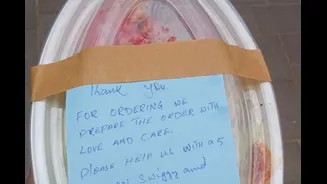 Thank you
FOR ORDERING WE
PREPARE THE ORDER WITH
LOVE AND CARE.
PLEASE HELP US WITH A 5
ON SWIGGY and